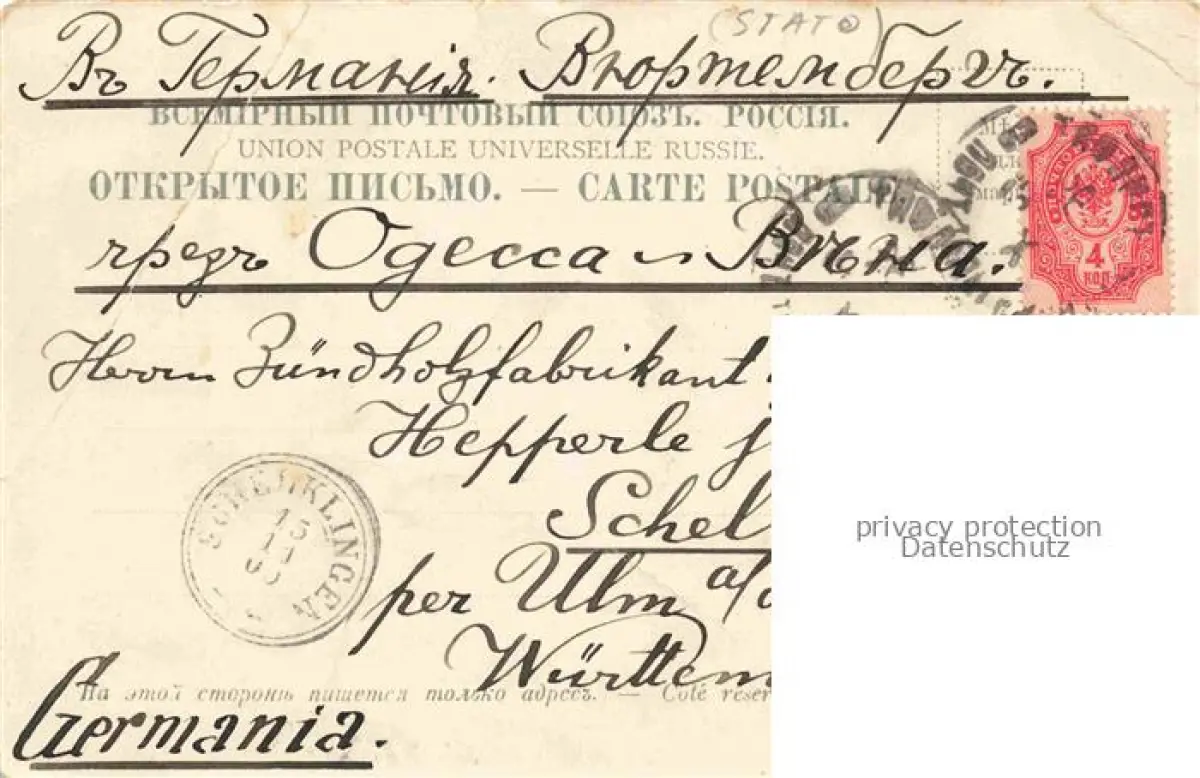 (STATO)
Въ Германiя. Вюртембергъ.
ВСЕМIРНЫЙ ПОЧТОВЫЙ СОЮЗЪ. РОССIЯ.
UNION POSTALE UNIVERSELLE RUSSIE.
ОТКРЫТОЕ ПИСЬМО. — CARTE POSTALE
чрезъ Одесса и Вѣна.
4
КОП
Herrn Zündholzfabrikant
Hepperle j
Schel
SCHELKLINGEN
15
11
per Ulm a/d
Württem
На этой сторонѣ пишется только адресъ. — Coté réser
Germania.
privacy protection
Datenschutz